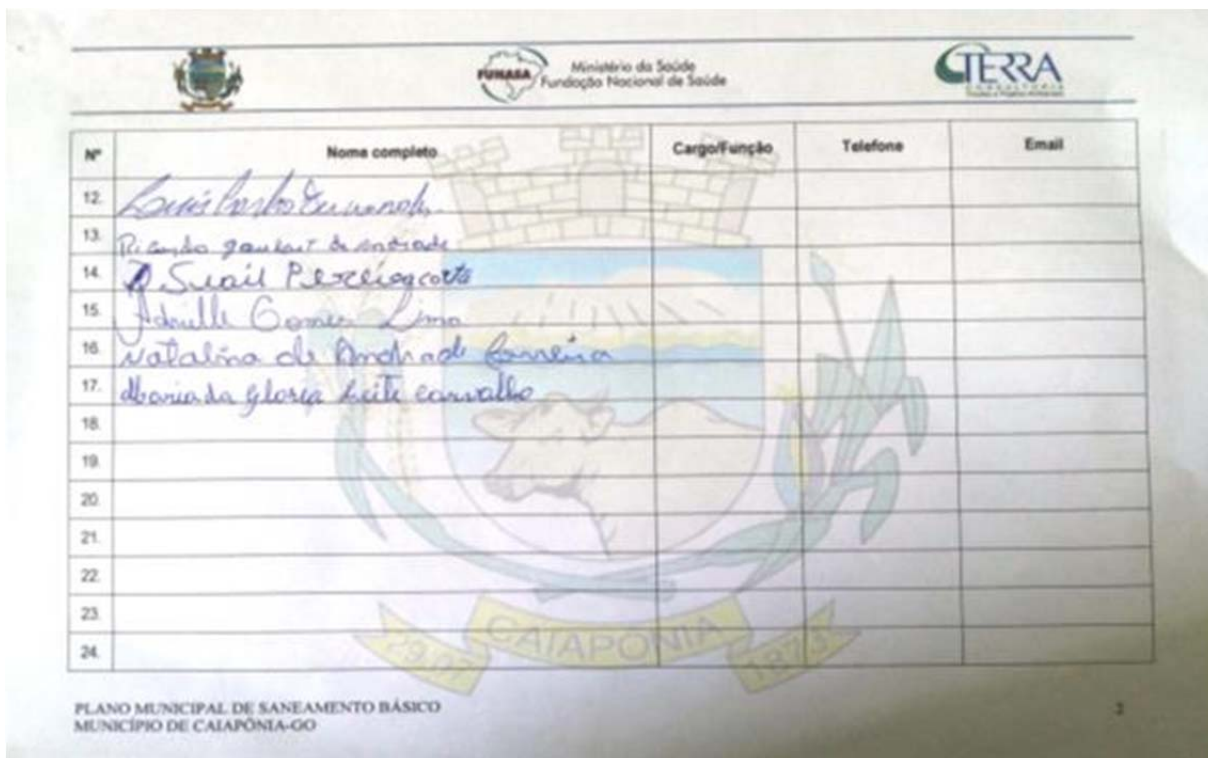 FUNASA
Ministério da Saúde
Fundação Nacional de Saúde
TERRA
CONSULTORIA
Nº Nome completo Cargo/Função Telefone Email
12. Luis Carlos
13. Ricardo de Andrade
14. Pereira Costa
15. Gomes Lima
16. Natalina de Andrade Carreira
17. Maria da Gloria Leite Carvalho
18.
19.
20.
21.
22.
23.
24.
29.07 CAIAPONIA 1873
PLANO MUNICIPAL DE SANEAMENTO BÁSICO
MUNICÍPIO DE CAIAPÔNIA-GO
2